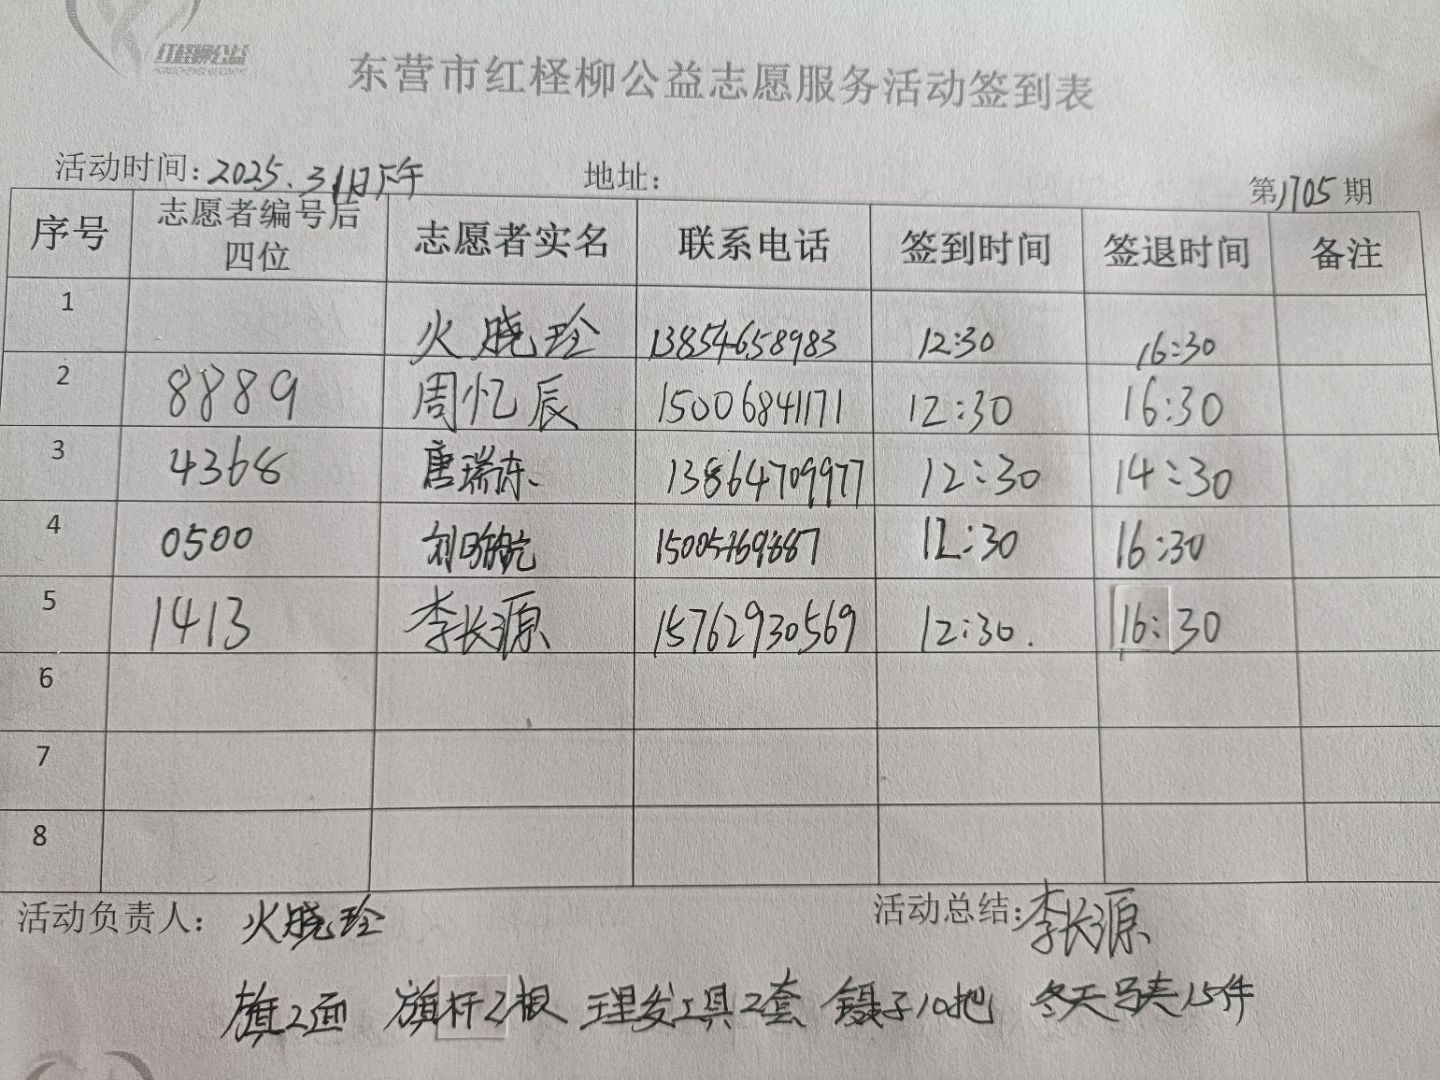 红柽柳公益
东营市红柽柳公益志愿服务活动签到表
活动时间：2025.3月1日下午 地址： 第1705期
序号 志愿者编号后四位 志愿者实名 联系电话 签到时间 签退时间 备注
1 火晓玲 13854658983 12:30 16:30
2 8889 周忆辰 15006841171 12:30 16:30
3 4368 唐瑞涛 13864709977 12:30 14:30
4 0500 刘 12:30 16:30
5 1413 李长源 15762930569 12:30. 16:30
6
7
8
活动负责人：火晓玲 活动总结：李长源
旗2面 旗杆2根 理发工具2套 镊子10把 冬天马夹15件